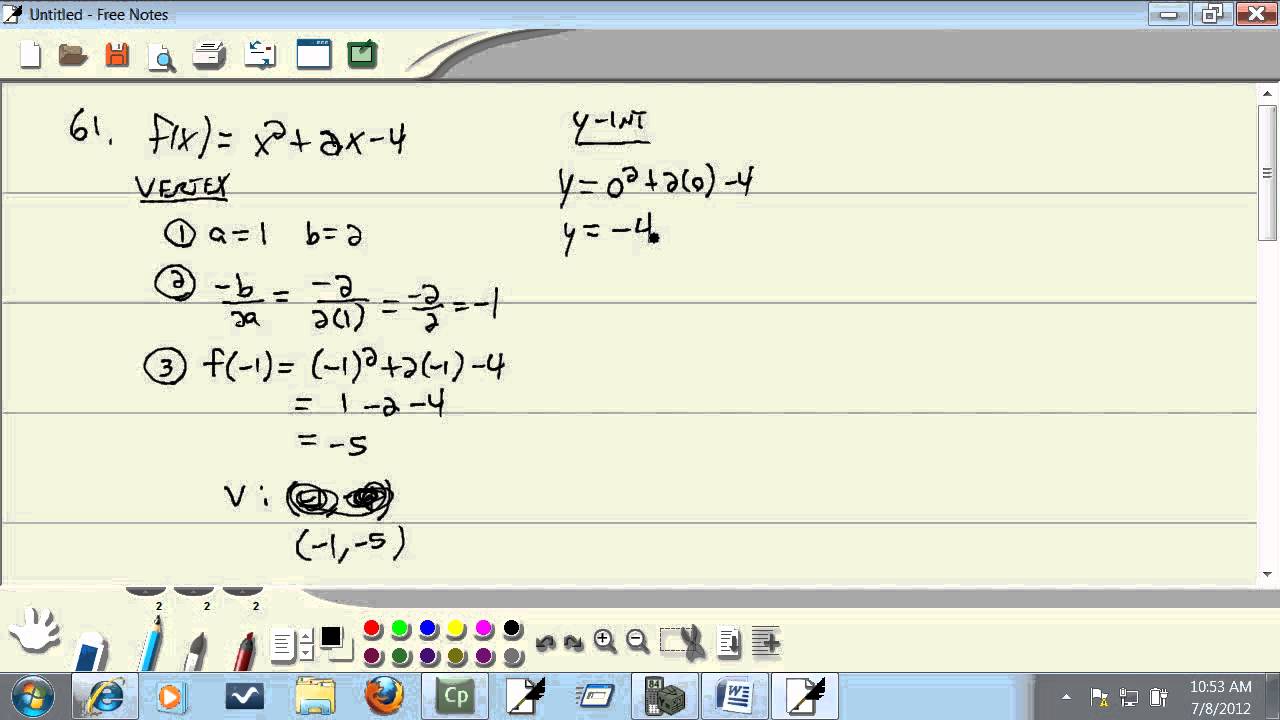 Untitled - Free Notes
61. f(x) = x² + 2x - 4
VERTEX
① a = 1 b = 2
② -b/2a = -2/2(1) = -2/2 = -1
③ f(-1) = (-1)² + 2(-1) - 4
= 1 - 2 - 4
= -5
V :
(-1, -5)
y-INT
y = 0² + 2(0) - 4
y = -4
2 2 2
Cp
84
W
10:53 AM
7/8/2012